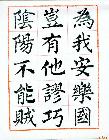 為我安樂國
豈有他謬巧
陰陽不能賊